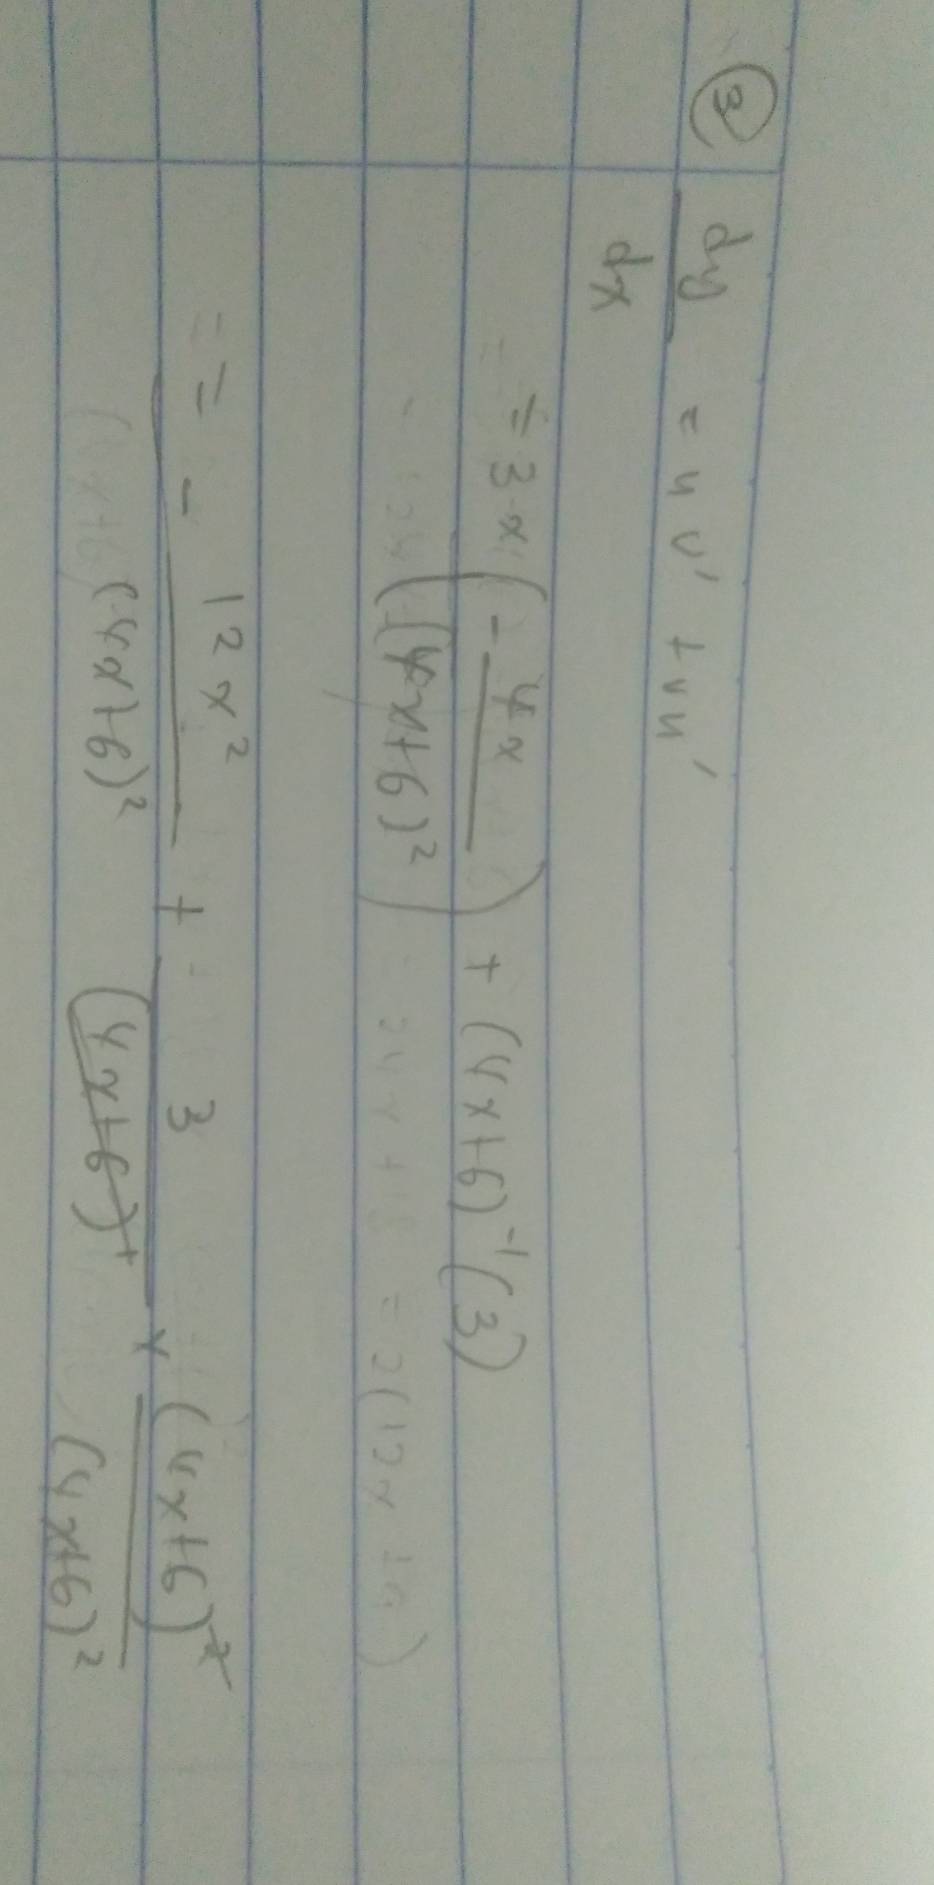 ③ dy/dx = uv' + vu'
= 3x (- 4x/(4x+6)²) + (4x+6)⁻¹(3)
= - 12x²/(4x+6)² + 3/(4x+6) × (4x+6)²/(4x+6)²